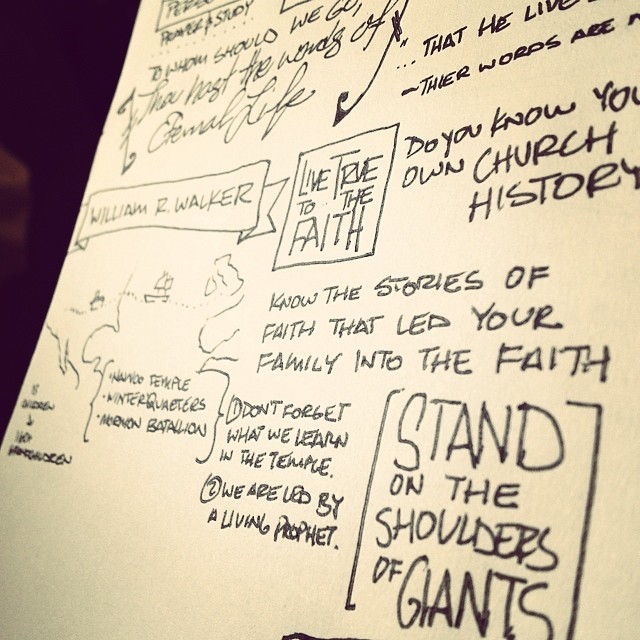 PRAYER & STUDY
TO WHOM SHOULD WE GO,
Thou hast the words of
Eternal Life
"... THAT HE LIVE
~ THIER WORDS ARE
WILLIAM R. WALKER
LIVE TRUE
TO THE
FAITH
DO YOU KNOW YOU
OWN CHURCH
HISTORY
KNOW THE STORIES OF
FAITH THAT LED YOUR
FAMILY INTO THE FAITH
• NAUVOO TEMPLE
• WINTERQUARTERS
• MORMON BATALLION
CHILDREN
① DON'T FORGET
WHAT WE LEARN
IN THE TEMPLE.
② WE ARE LED BY
A LIVING PROPHET.
STAND
ON THE
SHOULDERS
OF GIANTS